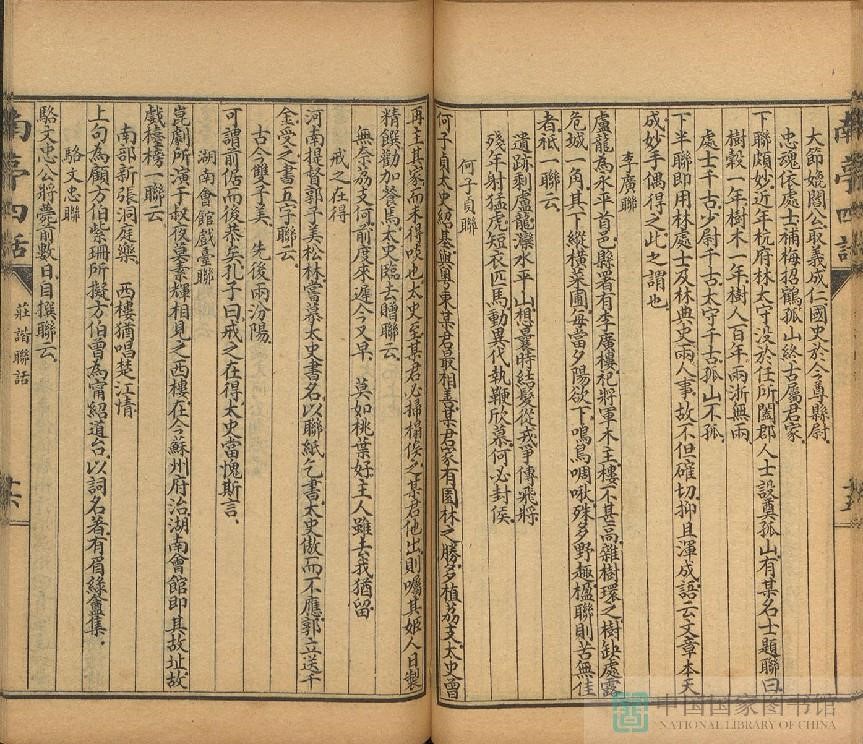 大節媲閻公取義成仁國史於今尊縣尉
忠魂依處士補梅招鶴孤山終古屬君家
下聯頗妙近年杭府林太守没於任所闔郡人士設奠孤山有某名士題聯曰
樹穀一年樹木一年樹人百年兩浙無兩
處士千古少尉千古太守千古孤山不孤
下半聯即用林處士及林典史兩人事故不但確切抑且渾成語云文章本天
成妙手偶得之此之謂也
李廣聯
盧龍為永平首邑縣署有李廣樓祀將軍木主樓不甚高雜樹環之樹缺處露
危城一角其下縱橫菜圃每當夕陽欲下鳴鳥啁啾殊多野趣楹聯則苦無佳
者祗一聯云
遺跡剩盧龍灤水平山想曩時結髮從戎爭傳飛將
殘年射猛虎短衣匹馬動異代執鞭欣慕何必封侯
何子貞聯
何子貞太史紹基與粵東某君最相善某君家有園林之勝多植荔支太史曾
再主其家而未得啖也太史至某君必掃榻俟之某君他出則囑其姬人日製
精饌勸加餐焉太史臨去贈聯云
無奈荔支何前度來遲今又早 莫如桃葉好主人雖去我猶留
戒之在得
河南提督郭子美松林嘗慕太史書名以聯紙乞書太史傲而不應郭立送千
金受之書五字聯云
古今雙子美 先後兩汾陽
可謂前倨而後恭矣孔子曰戒之在得太史當愧斯言
湖南會館戲臺聯
崑劇所演于叔夜慕素輝相見之西樓在今蘇州府治湖南會館即其故址故
戲臺榜一聯云
南部新張洞庭樂 西樓猶唱楚江情
上句為顧方伯紫珊所擬方伯曾為甯紹道台以詞名著有眉綠盦集
駱文忠聯
駱文忠公將薨前數日自撰聯云
南亭四話
莊諧聯話
中国国家图书馆
NATIONAL LIBRARY OF CHINA